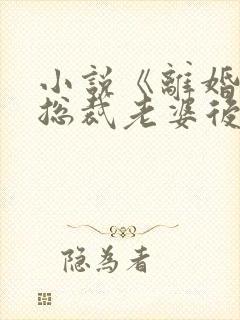 小說《離婚
总裁老婆後
隐为者